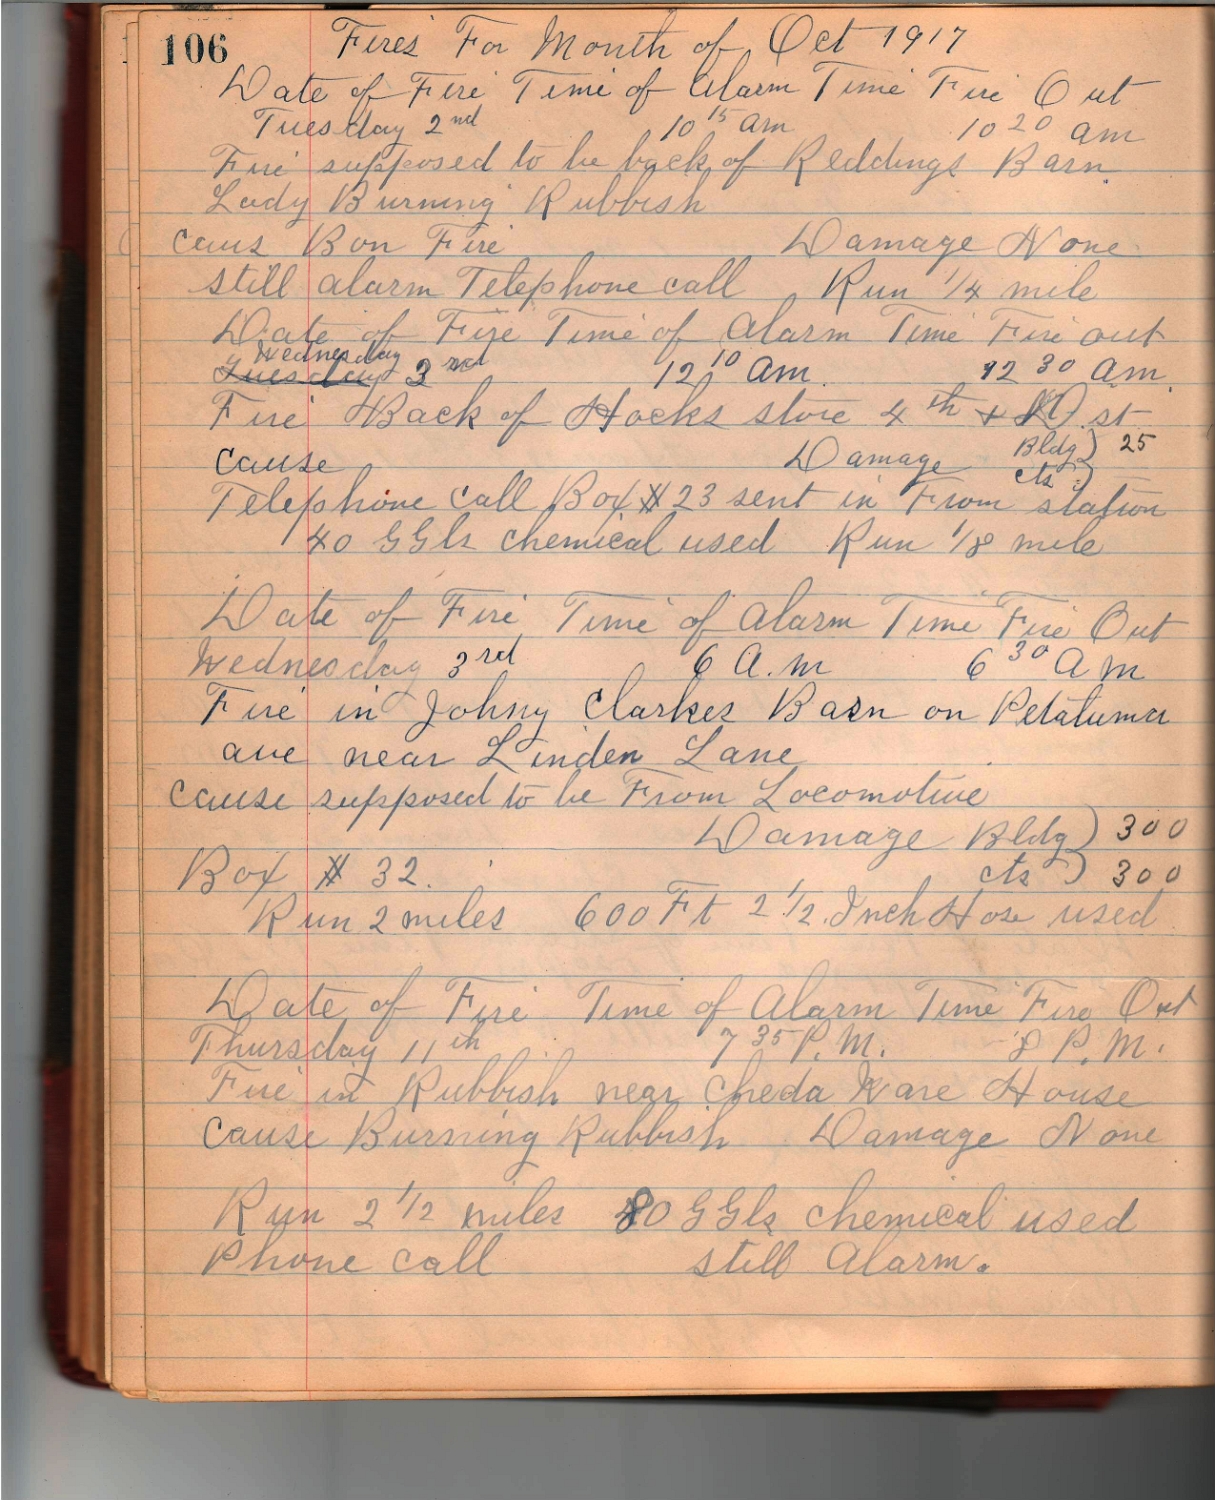 106 Fires For Month of Oct 1917
Date of Fire Time of Alarm Time Fire Out
Tuesday 2nd 10 15 am 10 20 am
Fire supposed to be back of Reddings Barn.
Lady Burning Rubbish
caus Bon Fire Damage None
still alarm Telephone call Run 1/4 mile
Date of Fire Time of Alarm Time Fire out
Wednesday
Tuesday 3rd 12 10 am. 12 30 am.
Fire Back of Hocks store 4th + D st
cause Damage Bldg) 25
cts :)
Telephone call Box # 23 sent in From station
40 GGls chemical used Run 1/8 mile
Date of Fire Time of Alarm Time Fire Out
Wednesday 3rd 6 A.m 6 30 A m
Fire in Johny Clarkes Barn on Petaluma
ave near Linden Lane
cause supposed to be From Locomotive
Damage Bldg) 300
Box # 32. cts ) 300
Run 2 miles 600 Ft 2 1/2 Inch Hose used
Date of Fire Time of Alarm Time Fire Out
Thursday 11th 7 35 P.M. 8 P.M.
Fire in Rubbish near Cheda Ware House
Cause Burning Rubbish Damage None
Run 2 1/2 miles 80 GGls chemical used
Phone call still Alarm.